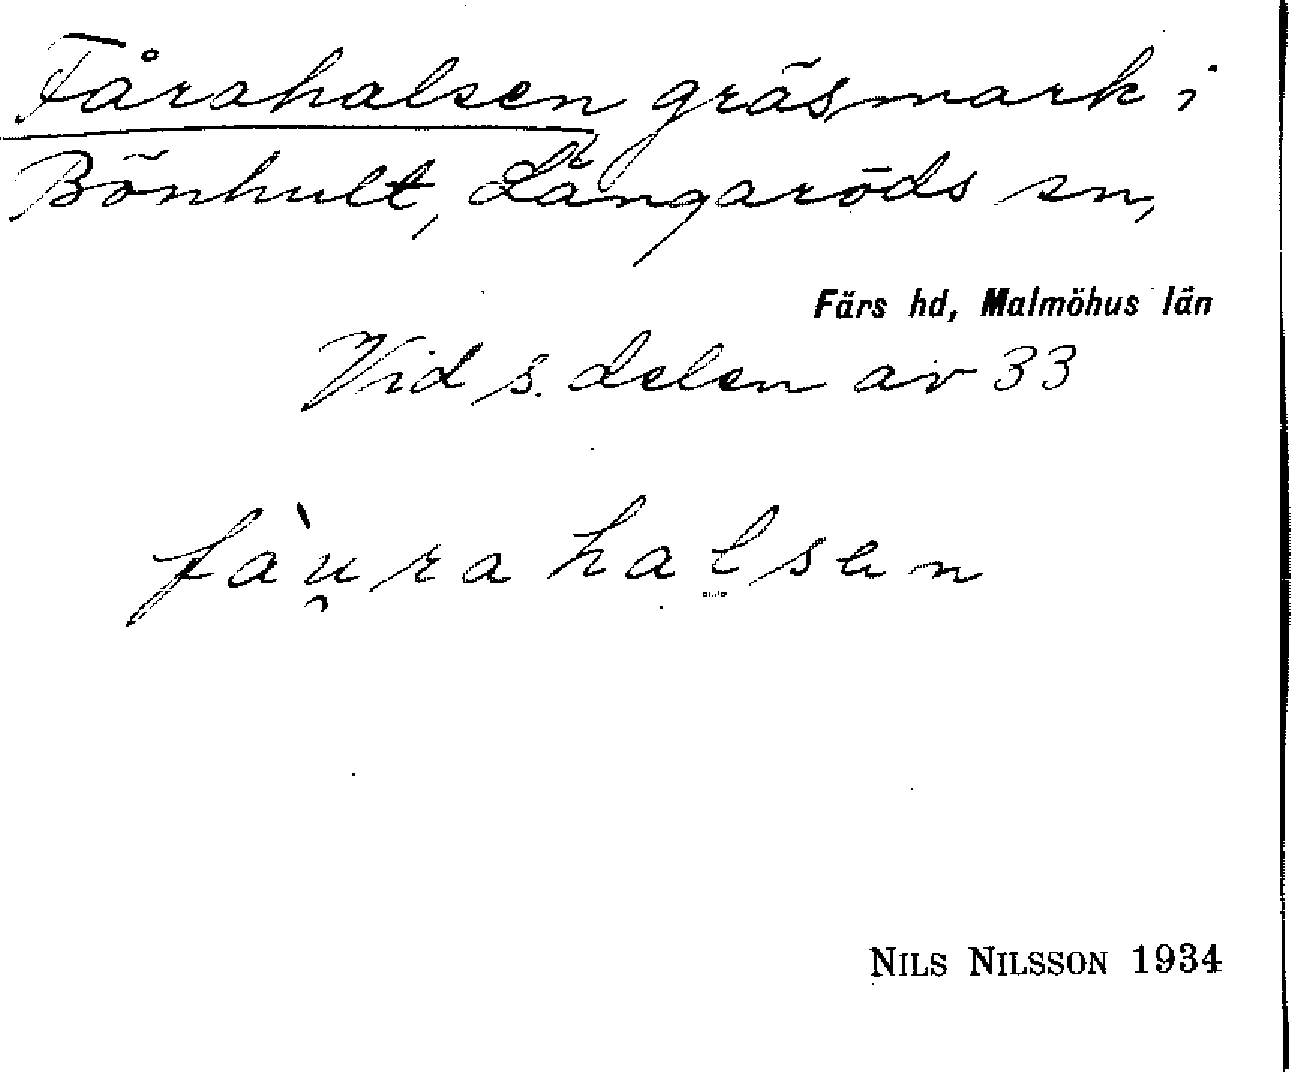 Fårahalsen gräsmark i
Bönhult, Långaröds sn,
Färs hd, Malmöhus län
Vid s. delen av 33
fàu̯rahalsen
NILS NILSSON 1934